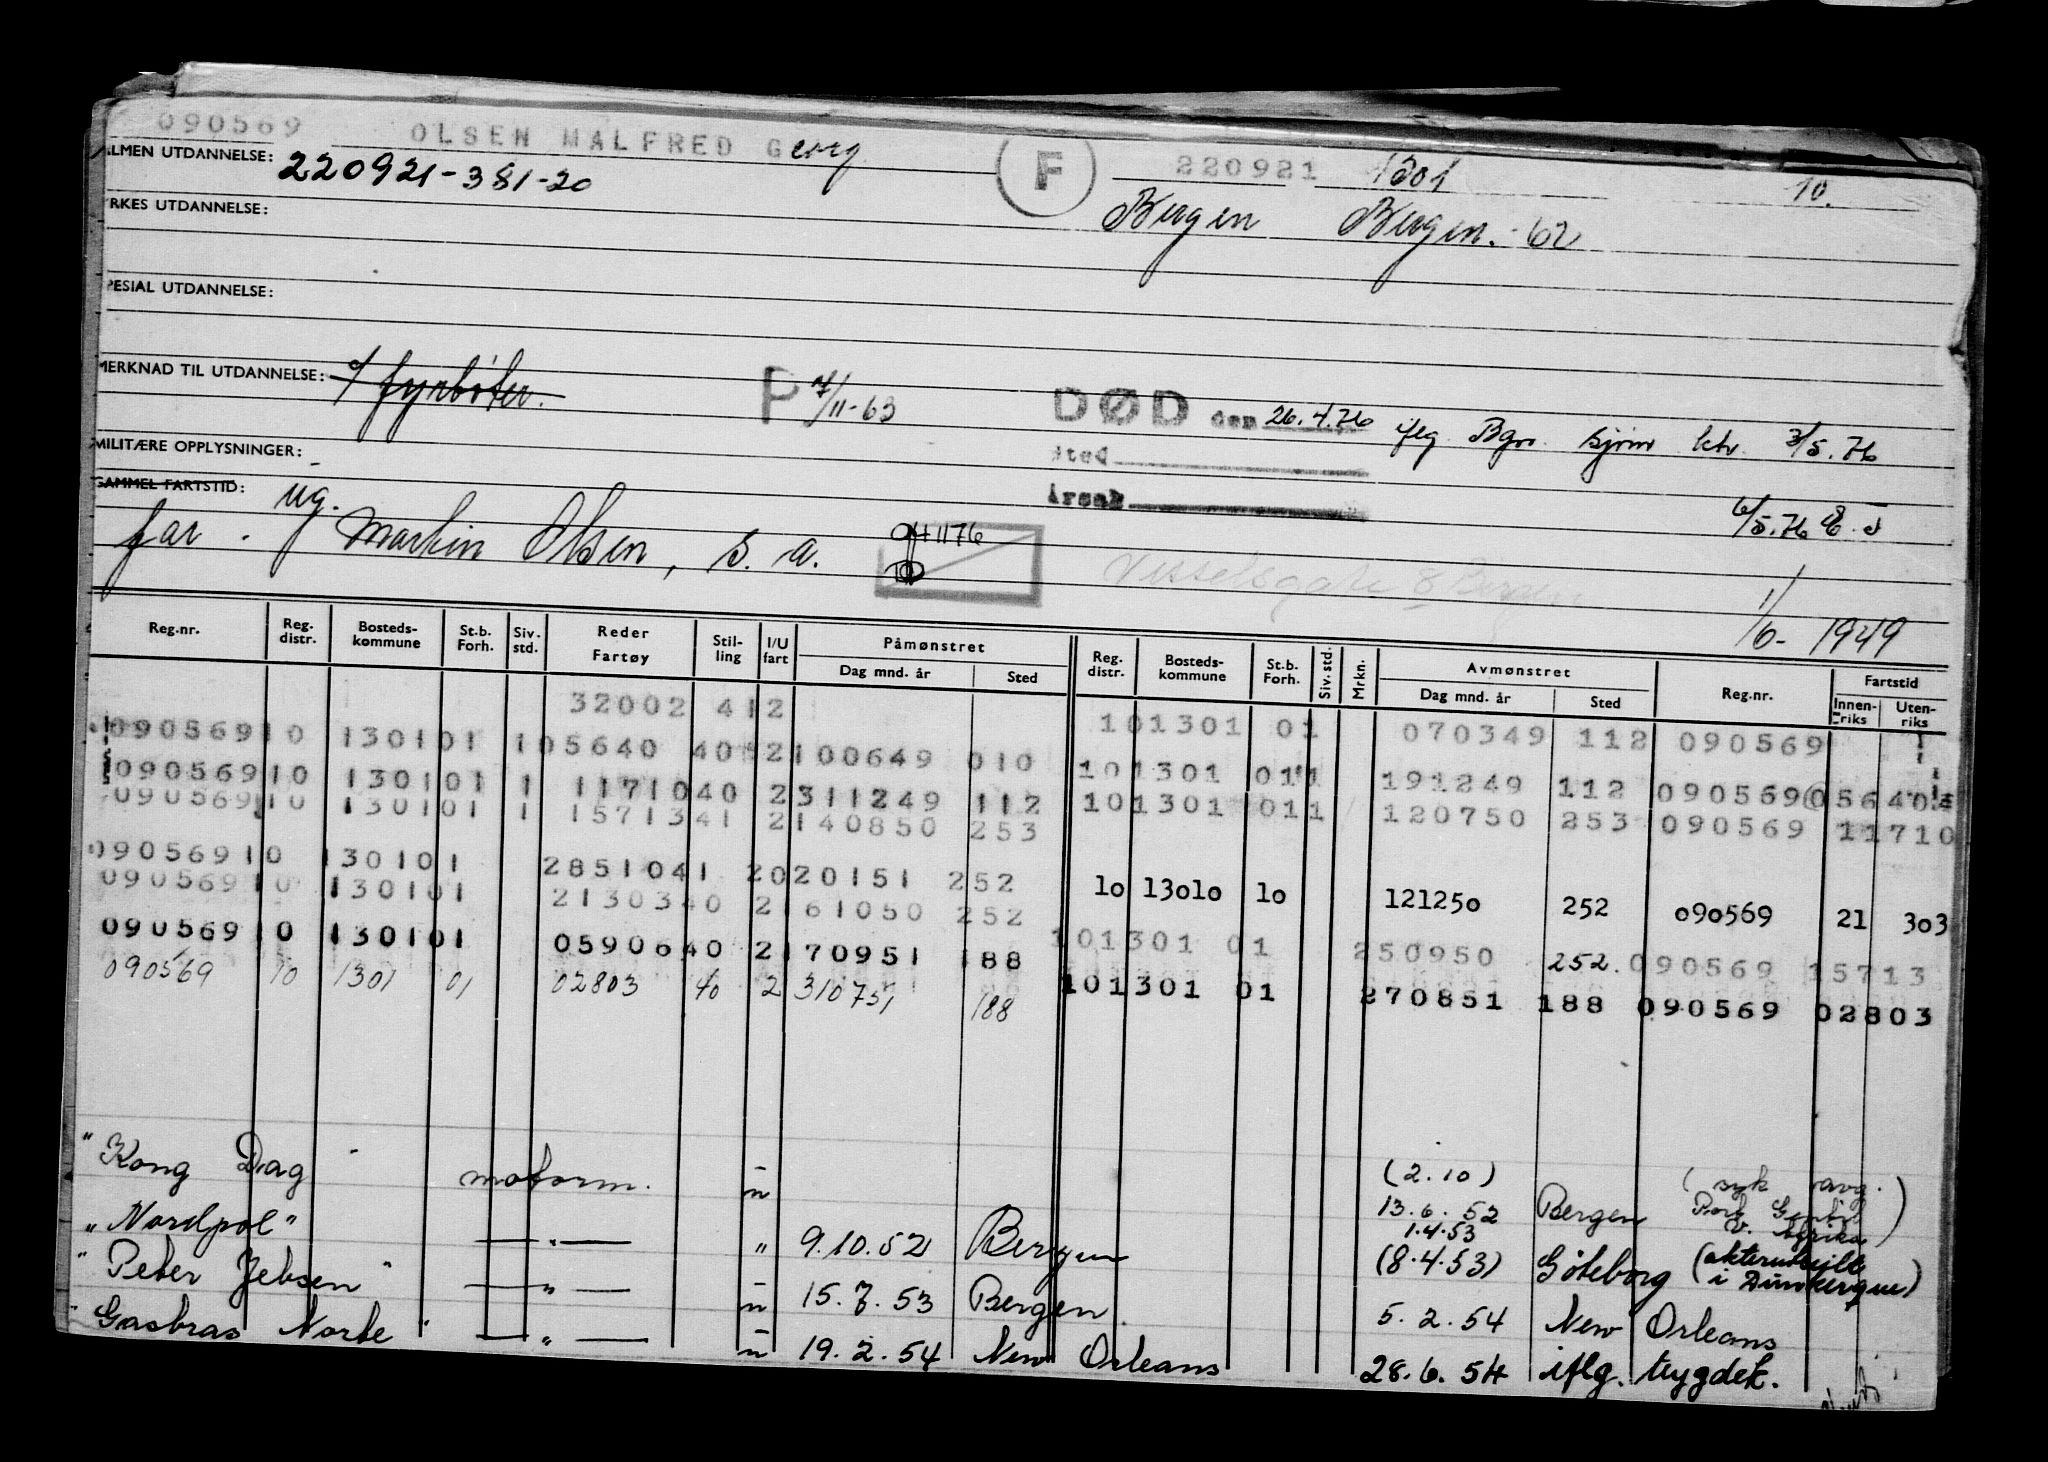 090569 OLSEN MALFRED Georg F 220921 1301 10.
ALMEN UTDANNELSE: 220921-381-20
YRKES UTDANNELSE: Bergen Bergen.-62
SPESIAL UTDANNELSE:
MERKNAD TIL UTDANNELSE: fyrbøter. P 7/11-63 DØD den 26.4.76 iflg Bgn. sjøm ktr 3/5.76
MILITÆRE OPPLYSNINGER: Sted
GAMMEL FARTSTID: ug. Årsak 6/5.76
far. Martin Olsen, s. a. 1176
1/6- 1949
Reg.nr. Reg. distr. Bosteds-kommune St.b. Forh. Siv. std. Reder Fartøy Stil-ling I/U fart Påmønstret Dag mnd. år Sted Reg. distr. Bosteds-kommune St.b. Forh. Siv. std. Mrkn. Avmønstret Dag mnd. år Sted Reg.nr. Fartstid Innen-riks Uten-riks
32002 412 101301 01 070349 112 090569
090569 10 130101 1 05640 40 2 100649 010 101301 011 191249 112 090569 05640
090569 10 130101 1 11710 40 2 311249 112 101301 011 120750 253 090569 11710
090569 10 130101 1 15713 41 2 140850 253
090569 10 130101 28510 41 2 020151 252 10 13010 10 121250 252 090569 21 303
090569 10 130101 21303 40 2 161050 252 101301 01 250950 252. 090569 15713
090569 10 130101 05906 40 2 170951 188 101301 01 270851 188 090569 02803
090569 10 1301 01 02803 40 2 310751 188
"Kong Dag" motorm. u (2.10) 13.6.52 Bergen (syk avg. Port Gentil V. Afrika)
"Nordpol" — " — " 9.10.52 Bergen 1.4.53 (8.4.53) Göteborg (akterutseilt i Dunkerque)
"Peter Jebsen" — " — u 15.7.53 Bergen. 5.2.54 New Orleans
"Gasbras Norte" — " — u 19.2.54 New Orleans 28.6.54 iflg. trygdek.